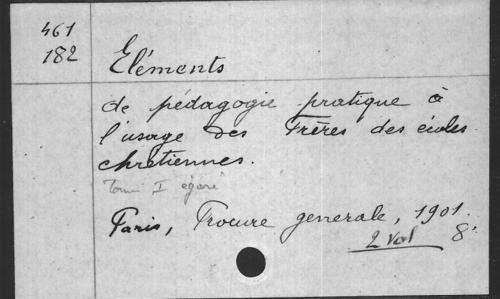 461
182
Eléments
de pédagogie pratique à
l'usage des Frères des écoles
chrétiennes.
Tome I égaré
Paris, Procure generale, 1901.
2 vol 8°